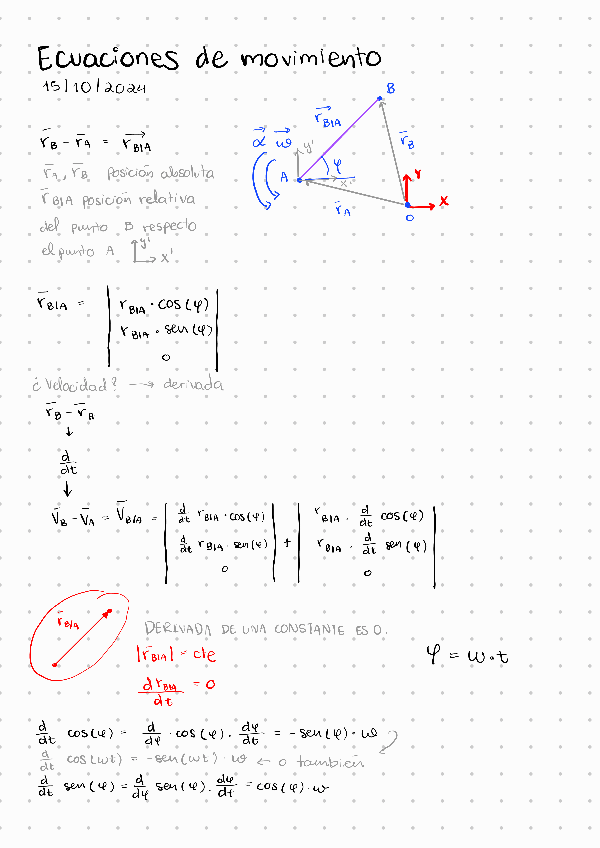 Ecuaciones de movimiento
15/10/2024
r̄_B - r̄_A = r_B/A
r̄_A, r̄_B posición absoluta
r̄_B/A posición relativa
del punto B respecto
el punto A y' x'
α ω
r_B/A
B
r̄_B
A
y'
x'
φ
r̄_A
Y
X
O
r̄_B/A = | r_B/A · cos(φ) |
| r_B/A · sen(φ) |
| 0 |
¿Velocidad? --→ derivada
r̄_B - r̄_A
↓
d/dt
↓
V̄_B - V̄_A = V̄_B/A = | d/dt r_B/A · cos(φ) | + | r_B/A · d/dt cos(φ) |
| d/dt r_B/A · sen(φ) | | r_B/A · d/dt sen(φ) |
| 0 | | 0 |
r̄_B/A
DERIVADA DE UNA CONSTANTE ES 0.
|r̄_B/A| = cte
φ = ω·t
d r_B/A / dt = 0
d/dt cos(φ) = d/dφ · cos(φ) · dφ/dt = -sen(φ) · ω
d/dt cos(ωt) = -sen(ωt) · ω ← o también
d/dt sen(φ) = d/dφ sen(φ) · dφ/dt = cos(φ) · ω